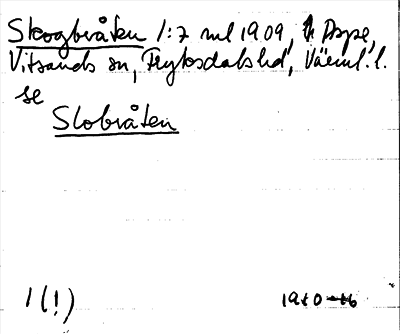 Skogbråten 1:7 ml 1909, Aspe,
Vitsands sn, Fryksdals hd, Värml. l.
se
Slobråten
1(!)